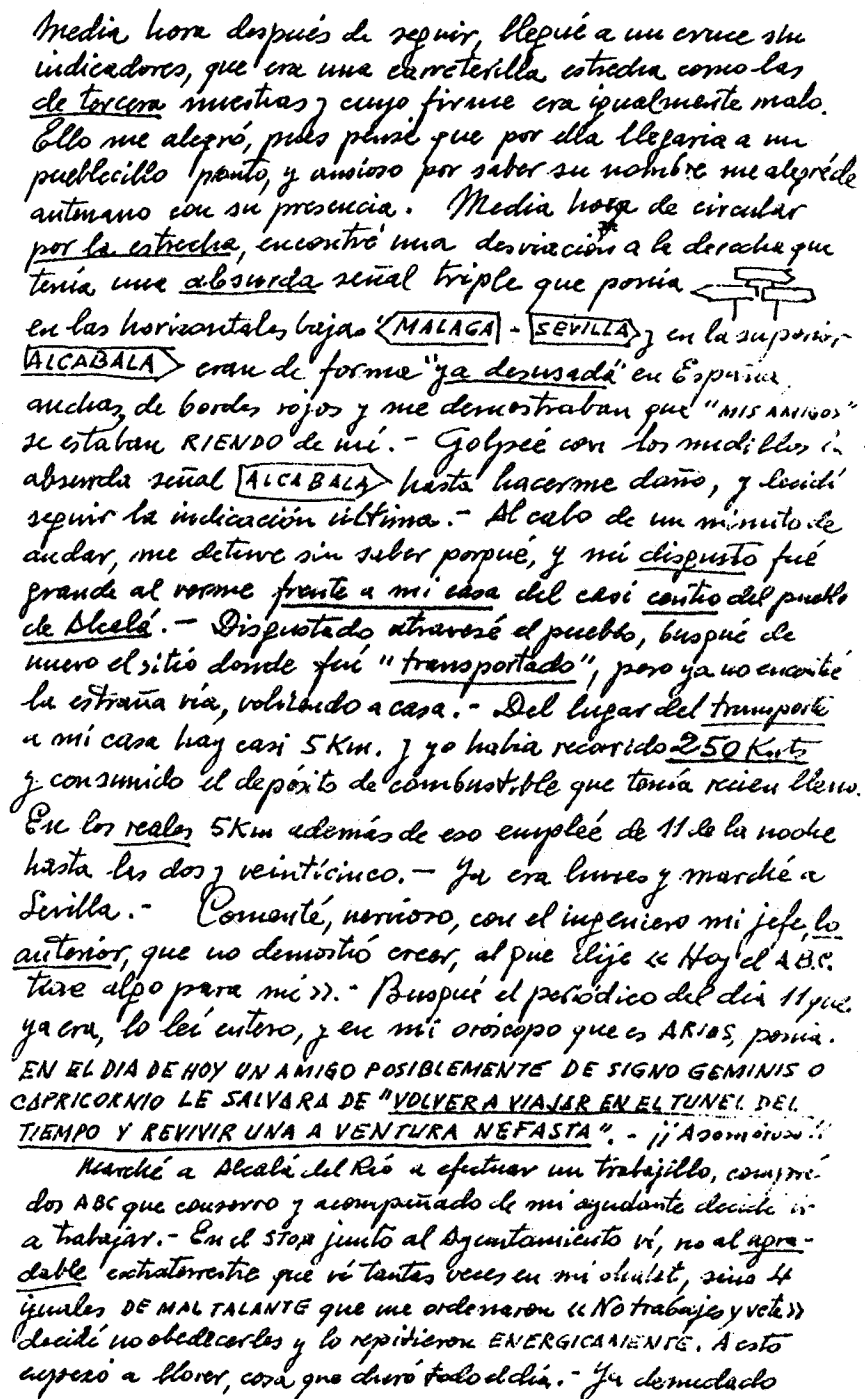 Media hora después de seguir, llegué a un cruce sin
indicadores, que era una carreterilla estrecha como las
de tercera nuestras y cuyo firme era igualmente malo.
Ello me alegró, pues pensé que por ella llegaria a un
pueblecillo pronto, y ansioso por saber su nombre me alegré de
antemano con su presencia. Media hora de circular
por la estrecha, encontré una desviación a la derecha que
tenía una absurda señal triple que ponía
en las horizontales bajas "MALAGA - SEVILLA y en la superior
ALCABALA eran de forma "ya desusada" en España
anchas, de bordes rojos y me demostraban que "MIS AMIGOS"
se estaban RIENDO de mí.- Golpeé con los nudillos la
absurda señal ALCABALA hasta hacerme daño, y decidí
seguir la indicación última.- Al cabo de un minuto de
andar, me detuve sin saber porqué, y mi disgusto fué
grande al verme frente a mi casa del casi centro del pueblo
de Alcalá.- Disgustado atravesé el pueblo, busqué de
nuevo el sitio donde fuí "transportado", pero ya no encontré
la estraña vía, volviendo a casa.- Del lugar del transporte
a mi casa hay casi 5 Km. y yo había recorrido 250 Kmts
y consumido el depósito de combustible que tenía recien lleno.
En los reales 5 Km además de eso empleé de 11 de la noche
hasta las dos y veinticinco.- Ya era lunes y marché a
Sevilla.- Comenté, nervioso, con el ingeniero mi jefe, lo
anterior, que no demostró creer, al que dije «Hoy el ABC.
trae algo para mí».- Busqué el periódico del día 11 que
ya era, lo leí entero, y en mi oróscopo que es ARIES, ponía.
EN EL DIA DE HOY UN AMIGO POSIBLEMENTE DE SIGNO GEMINIS O
CAPRICORNIO LE SALVARA DE "VOLVER A VIAJAR EN EL TUNEL DEL
TIEMPO Y REVIVIR UNA AVENTURA NEFASTA".- ¡¡Asombroso!!
Marché a Alcalá del Río a efectuar un trabajillo, compré
dos ABC que conservo y acompañado de mi ayudante decidí ir
a trabajar.- En el STOP junto al Ayuntamiento ví, no al agra-
dable extraterrestre que ví tantas veces en mi chalet, sino 4
iguales DE MAL TALANTE que me ordenaron «No trabajes y vete»
decidí no obedecerles y lo repitieron ENERGICAMENTE. A esto
empezó a llover, cosa que duró todo el día.- Ya demudado